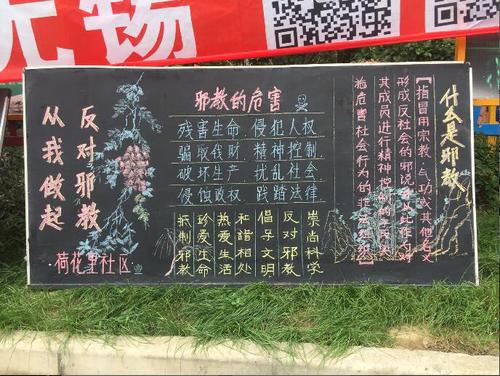 无锡
反对邪教
从我做起
荷花里社区
邪教的危害
残害生命 侵犯人权
骗取钱财 精神控制
破坏生产 扰乱社会
侵蚀政权 践踏法律
崇尚科学
反对邪教
倡导文明
和谐相处
热爱生活
珍爱生命
抵制邪教
什么是邪教
【指冒用宗教、气功或其他名义
形成反社会的
其成员进行精神控制
危害社会行为的